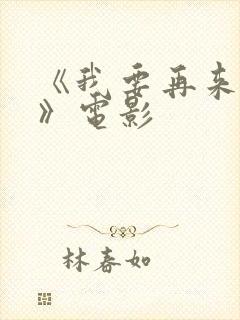 《我要再来
》电影
林春如